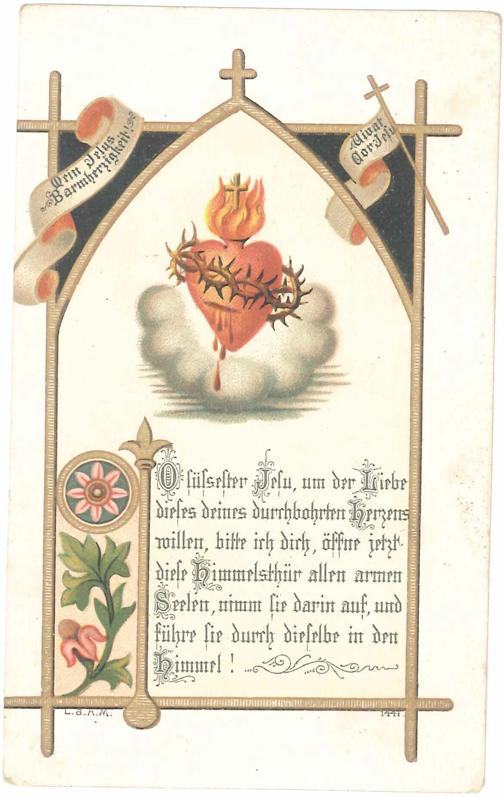 Mein Jesus
Barmherzigkeit!
Vivat
Cor Jesu
O süſseſter Jeſu, um der Liebe
dieſes deines durchbohrten Herzens
willen, bitte ich dich, öffne jetzt
dieſe Himmelsthür allen armen
Seelen, nimm ſie darin auf, und
führe ſie durch dieſelbe in den
Himmel!
L. d. A. M.
1441.